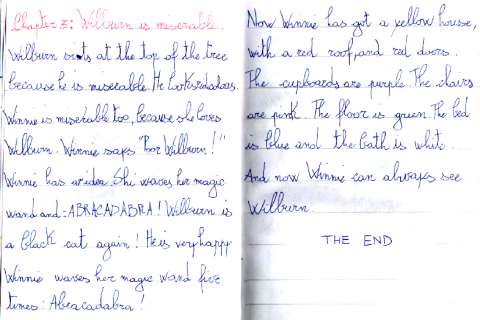 Chapter 3: Wilburn is miserable.
Wilburn sits at the top of the tree
because he is miserable. He looks ridiculous.
Winnie is miserable too, because she loves
Wilburn. Winnie says "Poor Wilburn!"
Winnie has an idea. Shi waves her magic
wand and: ABRACADABRA! Wilburn is
a black cat again! He is very happy
Winnie waves her magic wand five
times: Abracadabra!
Now Winnie has got a yellow house,
with a red roof, and red doors.
The cupboards are purple The chairs
are pink. The floor is green. The bed
is blue and the bath is white.
And now Winnie can always see
Wilburn.
THE END